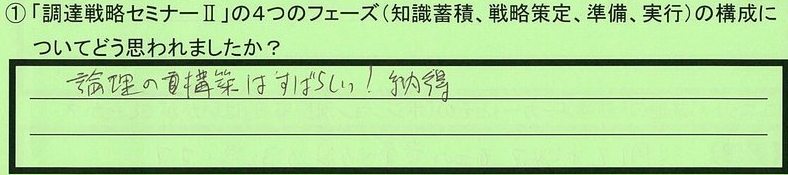 ①「調達戦略セミナーⅡ」の4つのフェーズ(知識蓄積、戦略策定、準備、実行)の構成に
ついてどう思われましたか?
論理の再構築はすばらしい! 納得